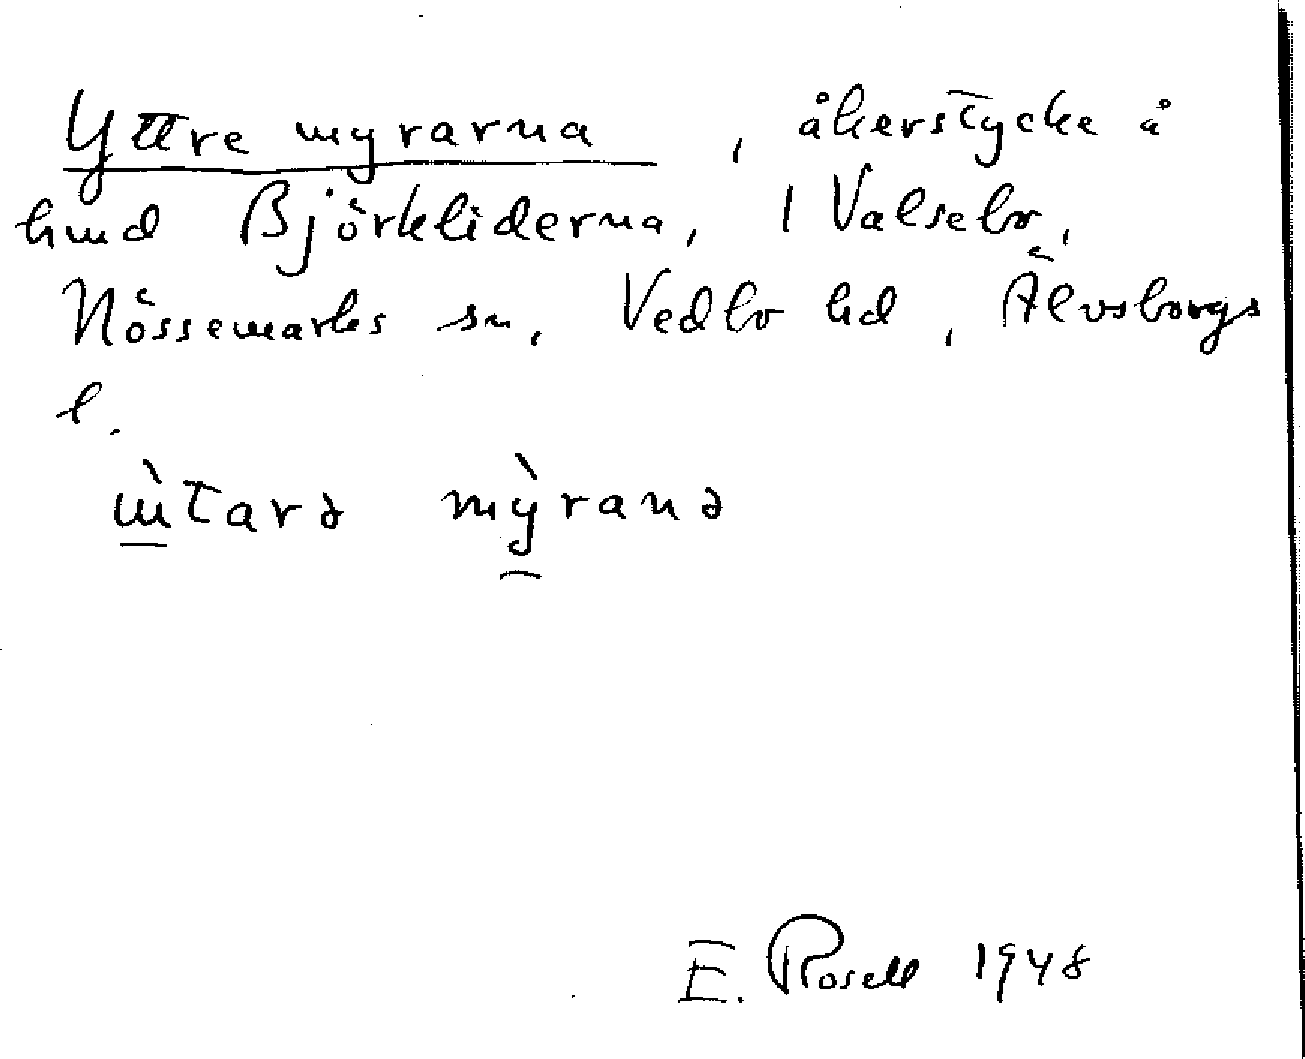 Yttre myrarna, åkerstycke å
hmd Björkliderna, 1 Valsebo,
Nössemarks sn, Vedbo hd, Älvsborgs
l.
ɯ̀tarə mỳranə
E. Rosell 1948